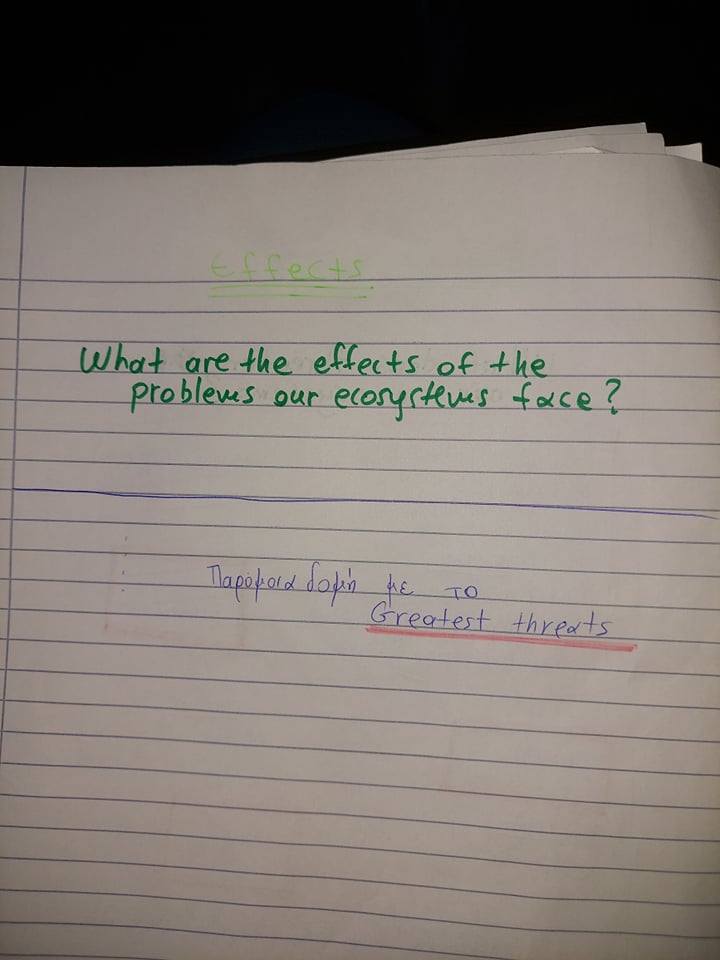 Effects
What are the effects of the
problems our ecosystems face?
Παρόμοια δομή με το
Greatest threats